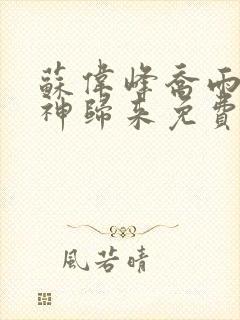 蘇偉峰喬雨
神歸來免費
風若晴